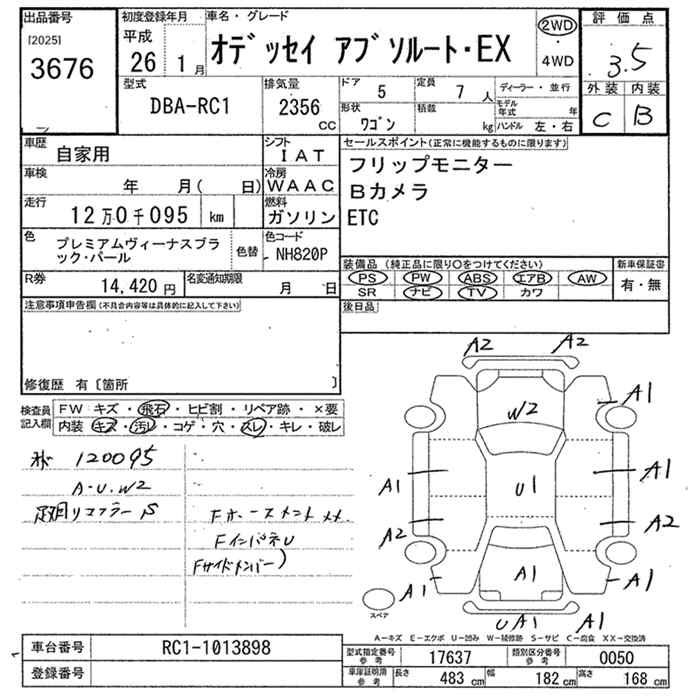 出品番号
[2025]
3676
初度登録年月
平成
26 1月
車名・グレード
オデッセイ アブソルート・EX
2WD
・
4WD
評価点
3.5
外装 内装
C B
型式
DBA-RC1
排気量
2356
CC
ドア 5
定員 7人
形状 ワゴン
積載 kg
ディーラー・並行
モデル年式 年
ハンドル 左・右
車歴
自家用
シフト
IAT
車検
年 月( 日)
冷房
WAAC
走行
12万0千095 km
燃料
ガソリン
色
プレミアムヴィーナスブラック・パール
色替
色コード
NH820P
R券
14,420円
名変通知期限
月 日
セールスポイント(正常に機能するものに限ります)
フリップモニター
Bカメラ
ETC
装備品(純正品に限り○をつけてください)
PS PW ABS エアB AW
SR ナビ TV カワ
新車保証書
有・無
後日品
注意事項申告欄(不具合内容等は具体的に記入して下さい)
修復歴 有〔箇所 〕
検査員記入欄
FW キズ・飛石・ヒビ割・リペア跡・×要
内装 キズ・汚レ・コゲ・穴・スレ・キレ・破レ
120095
A・U・W2
Fインパネ U
Fサイドメンバー)
A2 A2
A1
W2
A1 U1 A1
A2 A2
A1 A1 A1
UA1 A1
スペア
A−キズ E−エクボ U−凹み W−補修跡 S−サビ C−腐食 XX−交換済
車台番号
RC1-1013898
登録番号
型式指定番号
参考
17637
類別区分番号
参考
0050
車庫証明済
参考
長さ 483 cm
幅 182 cm
高さ 168 cm